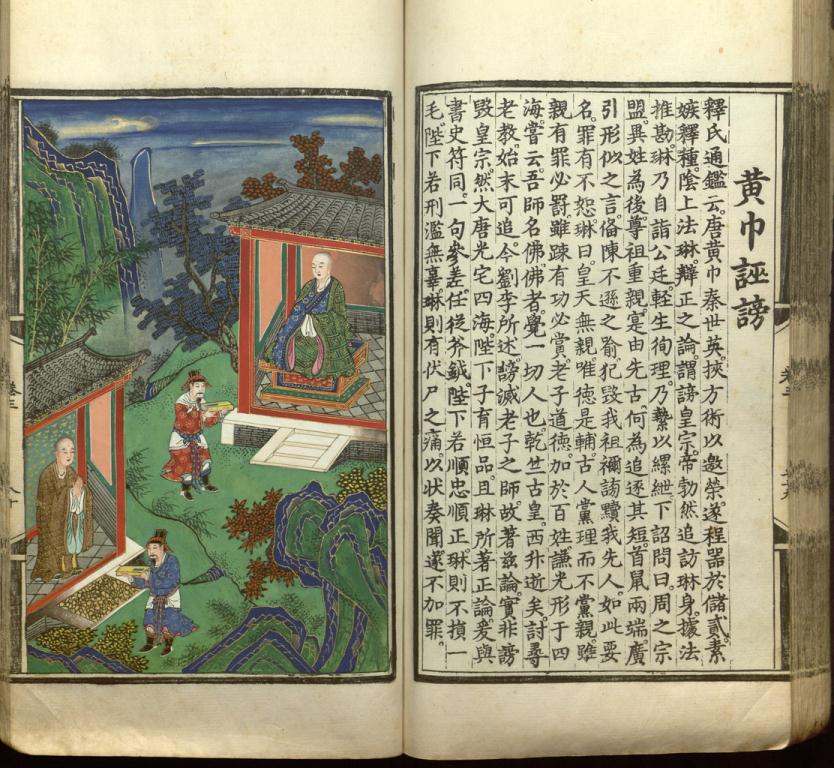 黄巾誣謗
釋氏通鑑云。唐黄巾秦世英。挾方術以邀榮。遂程器於儲貳。素
嫉釋種。陰上法琳。辯正之論。謂謗皇宗。帝勃然追訪琳身。據法
推勘。琳乃自詣公廷。輕生徇理。乃縶以縲紲。下詔問曰。周之宗
盟。異姓為後。尊祖重親。寔由先古。何為追逐其短。首鼠兩端。廣
引形似之言。俻陳不遜之喻。犯毀我祖禰。謗黷我先人。如此要
名。罪有不恕。琳曰。皇天無親。唯徳是輔。古人黨理而不黨親。雖
親有罪必罰。雖踈有功必賞。老子道徳。加於百姓。謙光形于四
海。嘗云。吾師名佛。佛者。覺一切人也。乾竺古皇。西升逝矣。討尋
老教。始末可追。今劉李所述。謗滅老子之師。故著兹論。實非謗
毀皇宗。然大唐光宅四海。陛下子育恒品。且琳所著正論。爰與
書史符同。一句參差。任從斧鉞。陛下若順忠順正。琳則不損一
毛。陛下若刑濫無辜。琳則有伏尸之痛。以狀奏聞。遂不加罪。
卷三